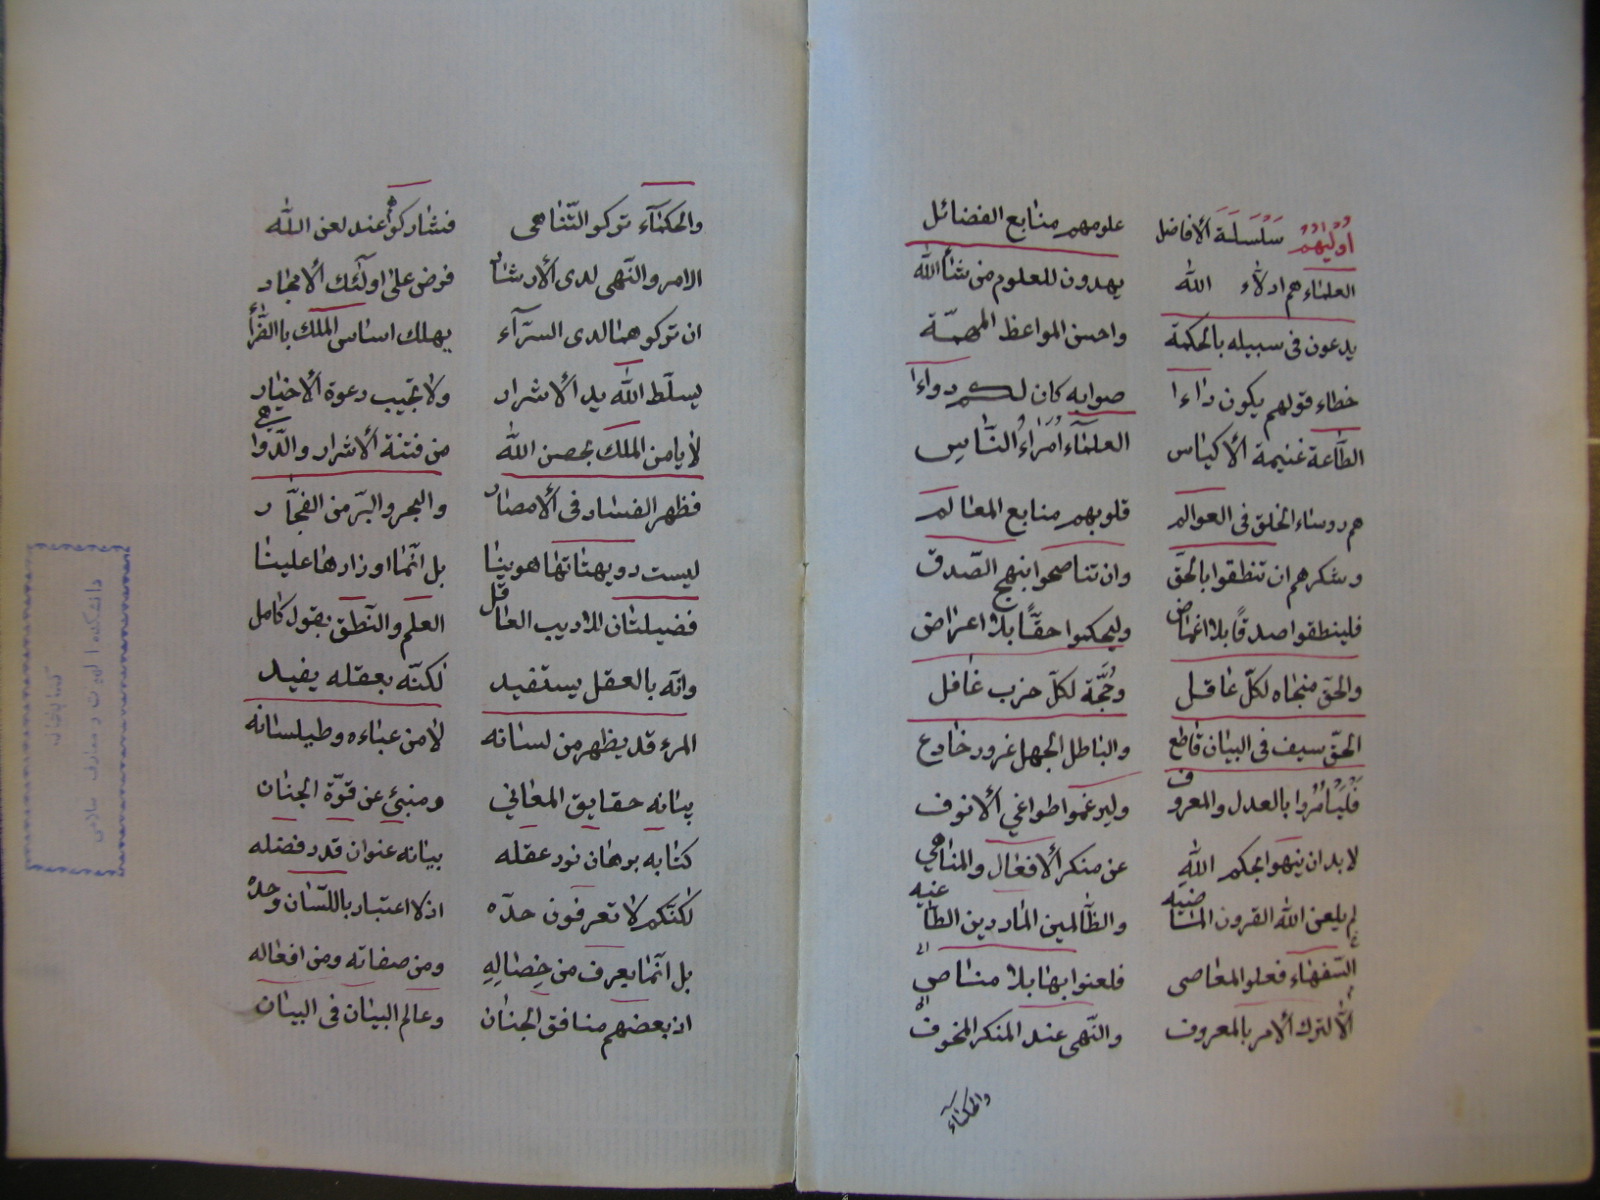 أوليهم سلسلة الأفاضل علومهم منابع الفضائل
العلماء هم ادلاء الله يهدون للعلوم من شاء الله
يدعون فى سبيله بالحكمة واحسن المواعظ المهمّة
خطاء قولهم يكون داءا صوابه كان لكم دواءا
الطّاعة غنيمة الأكياس العلمآء أمراء النّاس
هم روساء الخلق فى العوالم قلوبهم منابع المعالم
وشكرهم ان تنطقوا بالحقّ وان تناصحوا بنهج الصّدق
فلينطقوا صدقًا بلا اغماض وليحكموا حقًّا بلا اعراض
والحقّ منجاه لكلّ عاقل وحُجَّة لكلّ حزب غافل
الحقّ سيف فى البيان قاطع والباطل الجهل غرور خادع
فليأمروا بالعدل والمعروف وليرغموا طواغي ألانوف
لابد ان ينهوا بحكم اللهِ عن منكر ألافعال والمناهي
لم يلعن الله القرون الماضيه والظّالمين الماردين الطّاغيه
السّفهاء فعلو المعاصى فلعنوا بها بلا مناصٍ
ألّا لترك ألامر بالمعروف والنّهى عند المنكر المخوف
والحكمآء
والحكمآء تركو التّناهى فشاركوا هم عند لعن اللّه
الامر والنّهى لدى ألارشاد فرض على اولٓئك ألامجاد
ان تركوهما لدى السرّآء يهلك اساس الملك باالفَّرأ
يسلّط اللّه يد ألاشرار ولا يجيب دعوة ألاخيار
لا يامن الملك بحصن اللّه من فتنة ألاشرار والدّواهي
فظهر الفساد فى ألامصار والبحر والبرّ من الفجّار
ليست رويهتاتها هوينا بل انّما اوزارها علينا
فضيلتان للاديب العاقل العلم والنّطق بقول كامل
وانّه بالعقل يستفيد لكنّه بعقله يفيد
المرء قد يظهر من لسانه لا من عباءه وطيلسانه
بيانه حقايق المعاني ومنبئ عن قوّة الجنان
كتابه برهان نور عقله بيانه عنوان قدر فضله
لكنّكم لا تعرفون حدّه اذ لا اعتبار باللّسان وحده
بل انّما يعرف من خِصالِهِ ومن صفاته ومن افعاله
اذ بعضهم منافق الجنان وعالم البيان فى البيان
كتابخانه